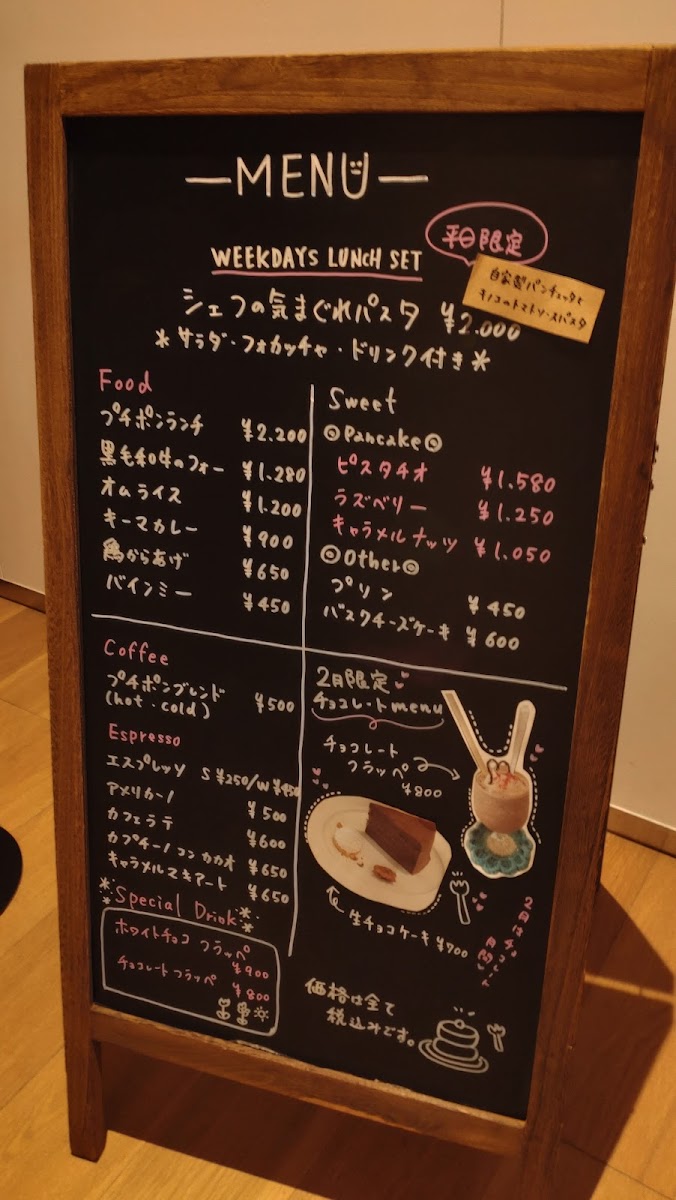 MENU
平日限定
WEEKDAYS LUNCH SET
自家製パンチェッタと
キノコのトマトソースパスタ
シェフの気まぐれパスタ ¥2.000
*サラダ・フォカッチャ・ドリンク付き*
Food
プチポンランチ ¥2.200
黒毛和牛のフォー ¥1.280
オムライス ¥1.200
キーマカレー ¥900
鶏からあげ ¥650
バインミー ¥450
Sweet
◎Pancake◎
ピスタチオ ¥1.580
ラズベリー ¥1.250
キャラメルナッツ ¥1.050
◎Other◎
プリン ¥450
バスクチーズケーキ ¥600
Coffee
プチポンブレンド ¥500
(hot・cold)
Espresso
エスプレッソ S ¥250/W ¥450
アメリカーノ ¥500
カフェラテ ¥600
カプチーノコンカカオ ¥650
キャラメルマキアート ¥650
Special Drink
ホワイトチョコ フラッペ
¥900
チョコレートフラッペ
¥800
2月限定
チョコレートmenu
チョコレート
フラッペ
¥800
生チョコケーキ ¥700
2月はチョコレート
月間
価格は全て
税込みです。